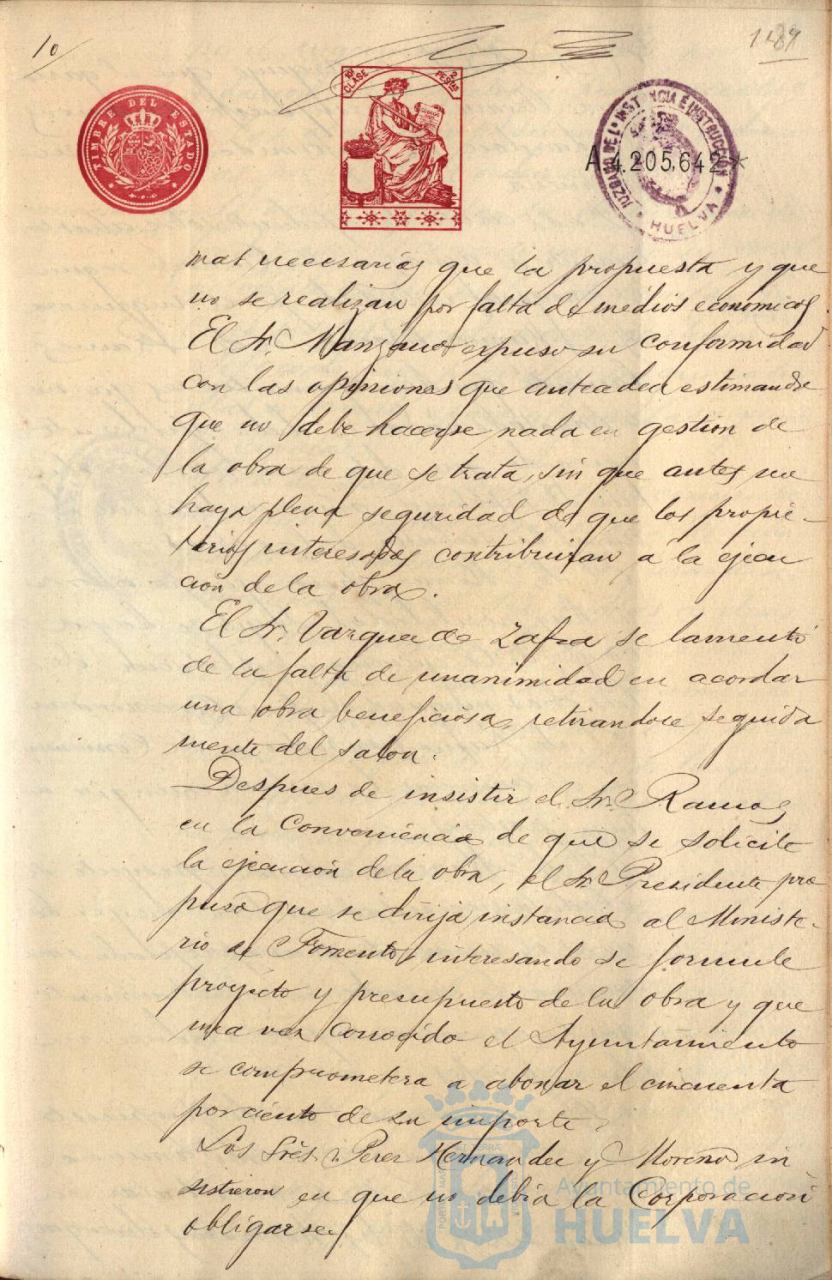 10
189
TIMBRE DEL ESTADO
10ª CLASE
2 PESETAS
JUZGADO DE 1ª INSTANCIA E INSTRUCCION
HUELVA
A4.205,642*
mas necesarias que la propuesta y que
no se realizan por falta de medios economicos.
El Sr. Manzano expuso su conformidad
con las opiniones que anteceden estimando
que no debe hacerse nada en gestion de
la obra de que se trata, sin que antes no
haya plena seguridad de que los propie-
tarios interesados contribuiran a la ejecu
ción de la obra.
El Sr. Vazquez de Zafra se lamentó
de la falta de unanimidad en acordar
una obra beneficiosa, retirandose seguida
mente del salon.
Despues de insistir el Sr. Ramos
en la conveniencia de que se solicite
la ejecución de la obra, el Sr. Presidente pro
puso que se dirija instancia al Ministe-
rio de Fomento, interesando se formule
proyecto y presupuesto de la obra y que
una vez conocido el Ayuntamiento
se comprometera a abonar el cincuenta
por ciento de su importe.
Los Srēs. Perez Hernandez y Moreno in
sistieron en que no debia la Corporacion
obligarse
Ayuntamiento de
HUELVA